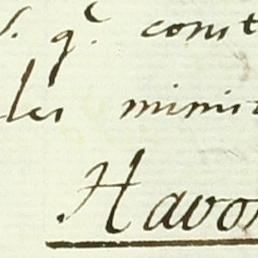 s. q.e const
les minist
Havor